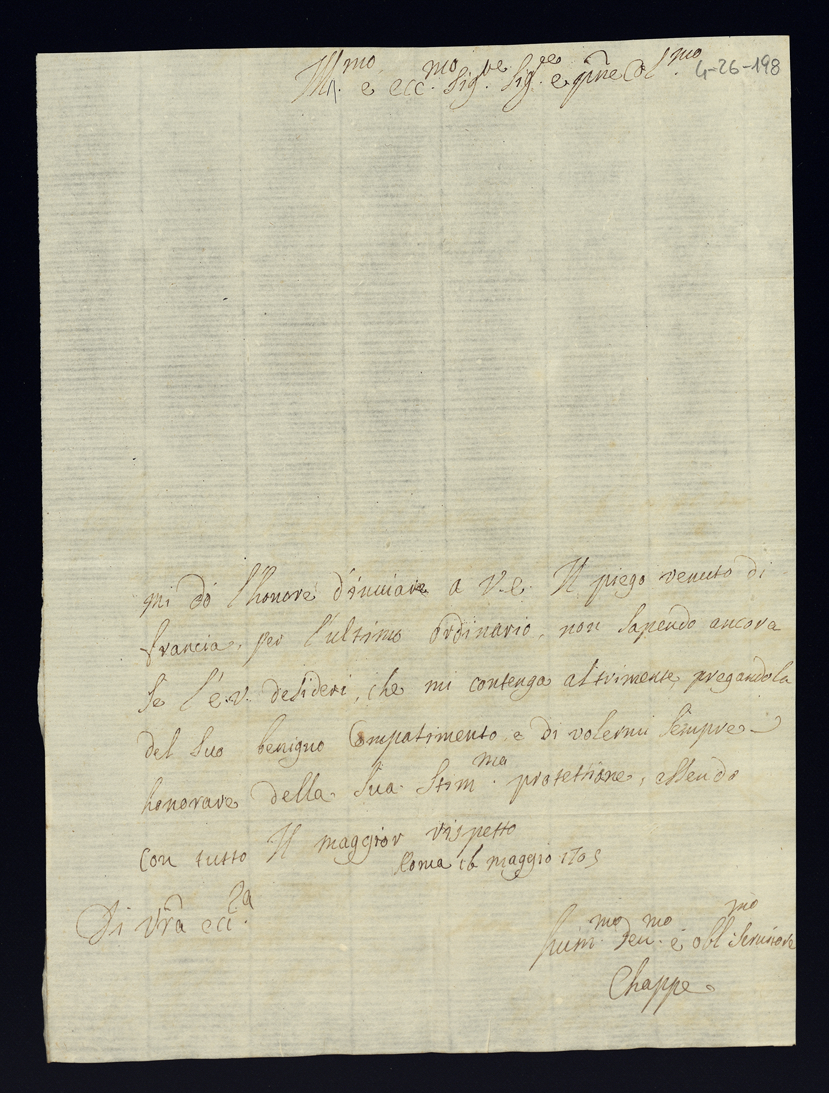 Ill.mo e ecc.mo Sig.re Sig.re e pne Col.mo
4-26-198
Mi dò l'honore d'inuiare a V.e. Il piego venuto di
francia, per l'ultimo ordinario, non sapendo ancora
se l'e.v. desideri, che mi contenga altrimente, pregandola
del suo benigno Compatimento, e di volermi sempre
honorare della sua stim.ma protettione, essendo
con tutto Il maggior rispetto
Roma 16 maggio 1705
Di vra ecc.za
hum.mo deu.mo e obl.mo seruitore
Chappe